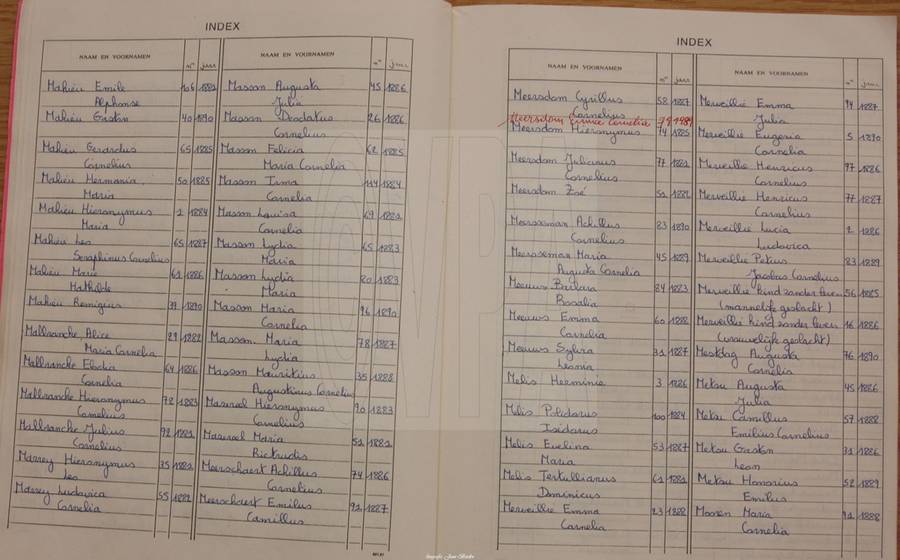 INDEX
NAAM EN VOORNAMEN n° jaar
Mahieu Emile 106 1882
Alphonse
Mahieu Gaston 40 1890
Mahieu Gerardus 65 1885
Cornelius
Mahieu Hermania 50 1885
Maria
Mahieu Hieronymus 2 1884
Maria
Mahieu Leo 65 1887
Seraphinus Cornelius
Mahieu Marie 61 1886
Mathilde
Mahieu Remigius 37 1890
Mallranche Alice 29 1882
Maria Cornelia
Mallranche Elodia 64 1886
Cornelia
Mallranche Hieronymus 72 1883
Cornelius
Mallranche Julius 92 1881
Cornelius
Marrey Hieronymus 35 1882
Leo
Marrey Ludovica 55 1882
Cornelia
NAAM EN VOORNAMEN n° jaar
Masson Augusta 45 1886
Julia
Masson Deodatus 26 1886
Cornelius
Masson Felicia 62 1885
Maria Cornelia
Masson Irma 114 1884
Cornelia
Masson Louisa 69 1882
Cornelia
Masson Lydia 65 1883
Maria
Masson Lydia 20 1883
Maria
Masson Maria 96 1890
Cornelia
Masson Maria 78 1887
Lydia
Masson Mauritius 35 1888
Augustinus Cornelius
Masureel Hieronymus 90 1883
Cornelius
Masureel Maria 51 1881
Rictrudis
Meerschaert Achillus 74 1886
Cornelius
Meerschaert Emilus 91 1887
Camillus
INDEX
NAAM EN VOORNAMEN n° jaar
Meersdom Cyrillus 58 1887
Cornelius
Meersdom Cornelia
Meersdom Hieronymus 74 1885
Meersdom Julianus 77 1882
Cornelius
Meersdom Zoé 51 1882
Meerseman Achillus 83 1890
Cornelius
Meerseman Maria 45 1887
Augusta Cornelia
Meeuws Barbara 84 1883
Rosalia
Meeuws Emma 60 1882
Cornelia
Meeuws Sylvia 31 1887
Leonia
Melis Herminie 3 1886
Melis Polidorus 100 1884
Isidorus
Melis Evelina 53 1887
Maria
Melis Tertullianus 61 1882
Dominicus
Merveillie Emma 23 1888
Cornelia
NAAM EN VOORNAMEN n° jaar
Merveillie Emma 94 1887
Julia
Merveillie Eugenia 5 1890
Cornelia
Merveillie Henricus 97 1886
Cornelius
Merveillie Henricus 77 1887
Cornelius
Merveillie Lucia 2 1886
Ludovica
Merveillie Petrus 83 1889
Jacobus Cornelius
Merveillie Kind zonder leven 56 1885
(mannelijk geslacht)
Merveillie Kind zonder leven 16 1886
(vrouwelijk geslacht)
Mestdag Augusta 76 1890
Cornelia
Metsu Augusta 45 1886
Julia
Metsu Camillus 57 1888
Emilius Cornelius
Metsu Gaston 31 1886
Leon
Metsu Honorius 52 1889
Emilus
Moonen Maria 91 1888
Cornelia